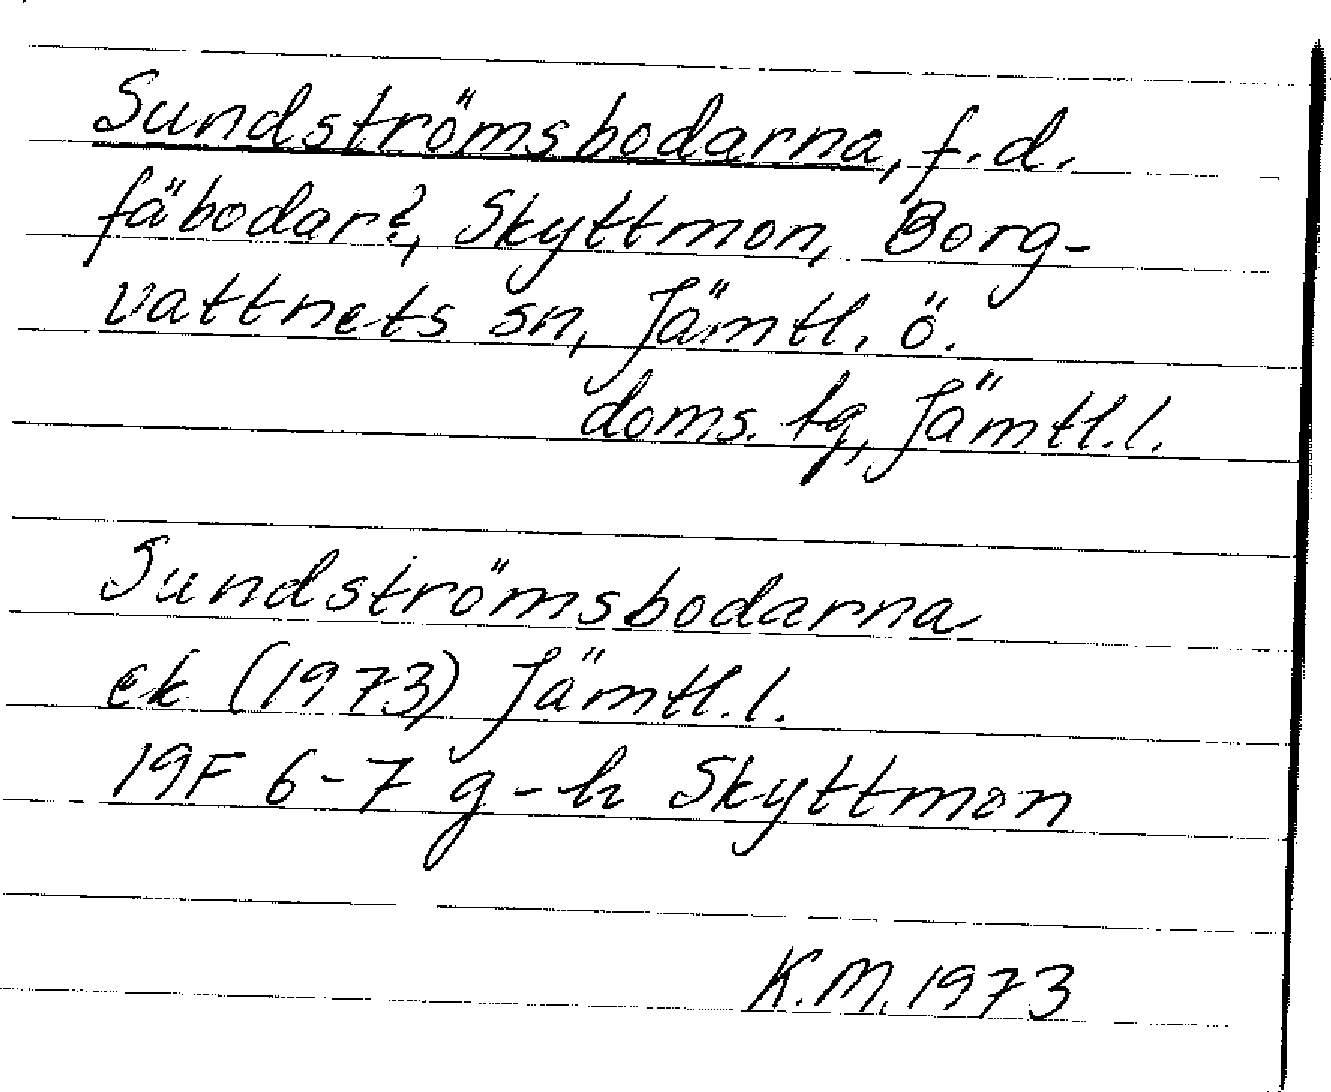 Sundströmsbodarna, f.d.
fäbodar?, Skyttmon, Borg-
vattnets sn, Jämtl. ö.
doms. tg, Jämtl.l.
Sundströmsbodarna
ek (1973) Jämtl.l.
19F 6-7 g-h Skyttmon
K.M. 1973